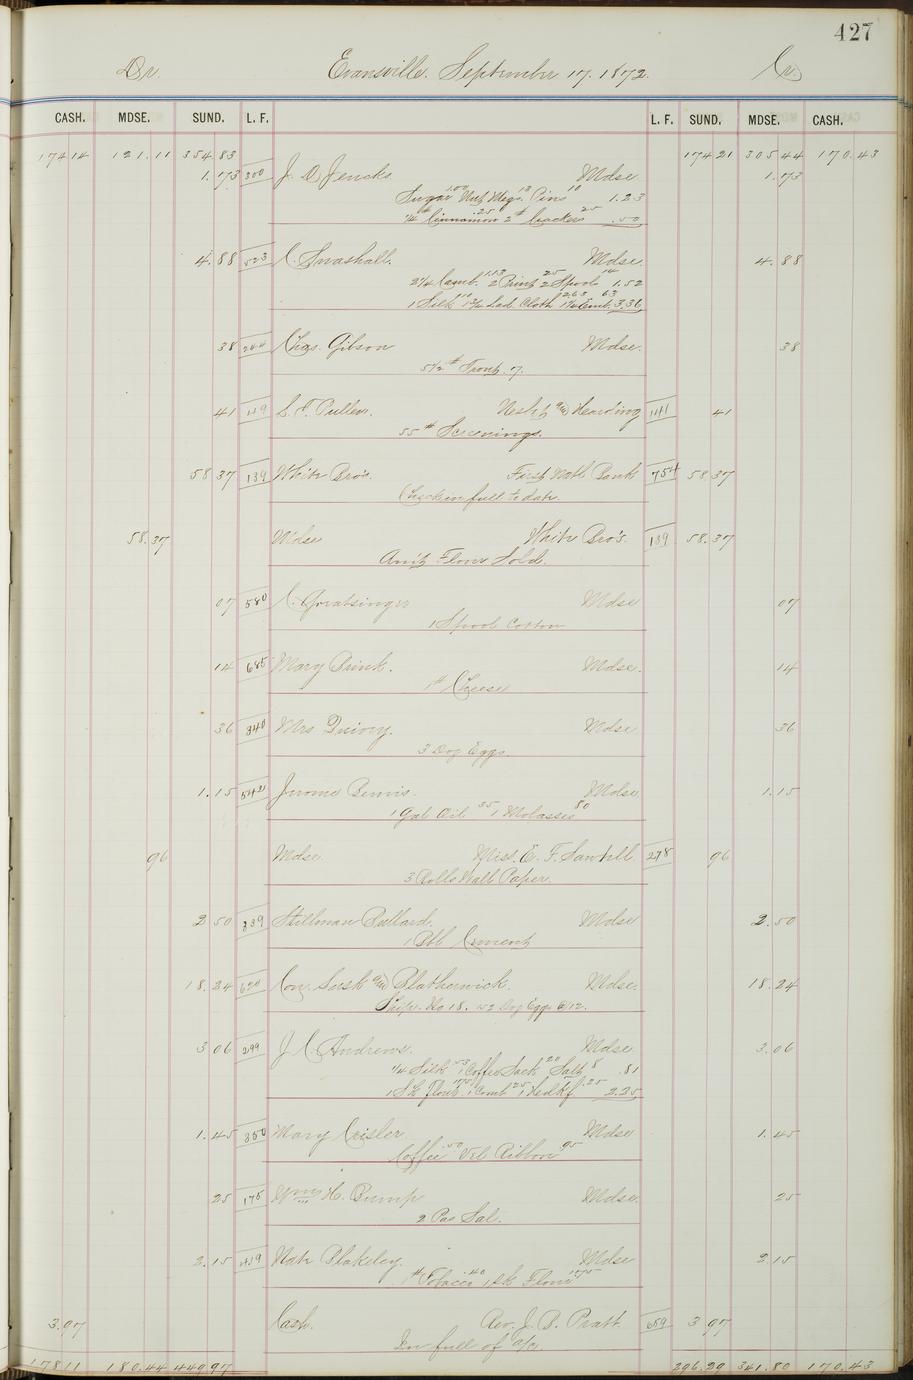 427
Dr. Evansville. September 17. 1872. Cr.
CASH. MDSE. SUND. L. F. L. F. SUND. MDSE. CASH.
174 14 121.11 354.83 174 21 305.44 170.43
1.73 300 J. D. Jencks Mdse 1.73
Sugar 1.00 Nut Megs. 13 Pins 10 1.23
1/4 # Cinnamon 25 2 # Crackers 25 .50
4.88 523 C. Snashall. Mdse. 4.88
1.52
1 Silk Lad. Cloth 3.36
38 244 Chas. Gibson Mdse. 38
5 1/2 # Trout. 7.
41 139 S. E. Pullen. 141 41
55 # Screenings.
58 37 139 White Bro's. First Natl Bank 754 58.37
Check in full to date.
58.37 Mdse White Bro's. 139 58.37
Am't Flour Sold.
07 580 Mdse 07
1 Spool Cotton
14 685 Mary Brink. Mdse. 14
1 # Cheese
36 340 Mrs Mdse 36
3 Doz Eggs.
1.15 542 Jerome Bemis. Mdse 1.15
1 Gal Oil 35 1 Molasses 80
96 Mdse. Miss. E. F. Sawtell 278 96
3 Rolls Wall Paper.
2 50 339 Stillman Bullard. Mdse 2.50
1 Bbl Cement
18.24 620 Con. Lusk and Blatherwick. Mdse. 18.24
Ship. No 18. 152 Doz Eggs @ 12.
3 06 299 J. C. Andrews. Mdse. 3.06
1/4 Silk 53 1 Coffee Sack 20 Salt 8 .81
1 Sk Flour 175 1 Comb 25 1 Hedkf 25 2.25
1.45 350 Mary Crisler Mdse 1.45
Coffee 50 Vel Ribbon 95
25 175 Wm H. Bump Mdse. 25
2 Pas Sal.
2.15 439 Nate Blakeley. Mdse 2.15
1 # Tobacco 40 1 sk Flour 175
3.97 Cash. Rev. J. B. Pratt. 659 3 97
In full of a/c
178 11 180.44 449.97 296.29 341.80 170.43